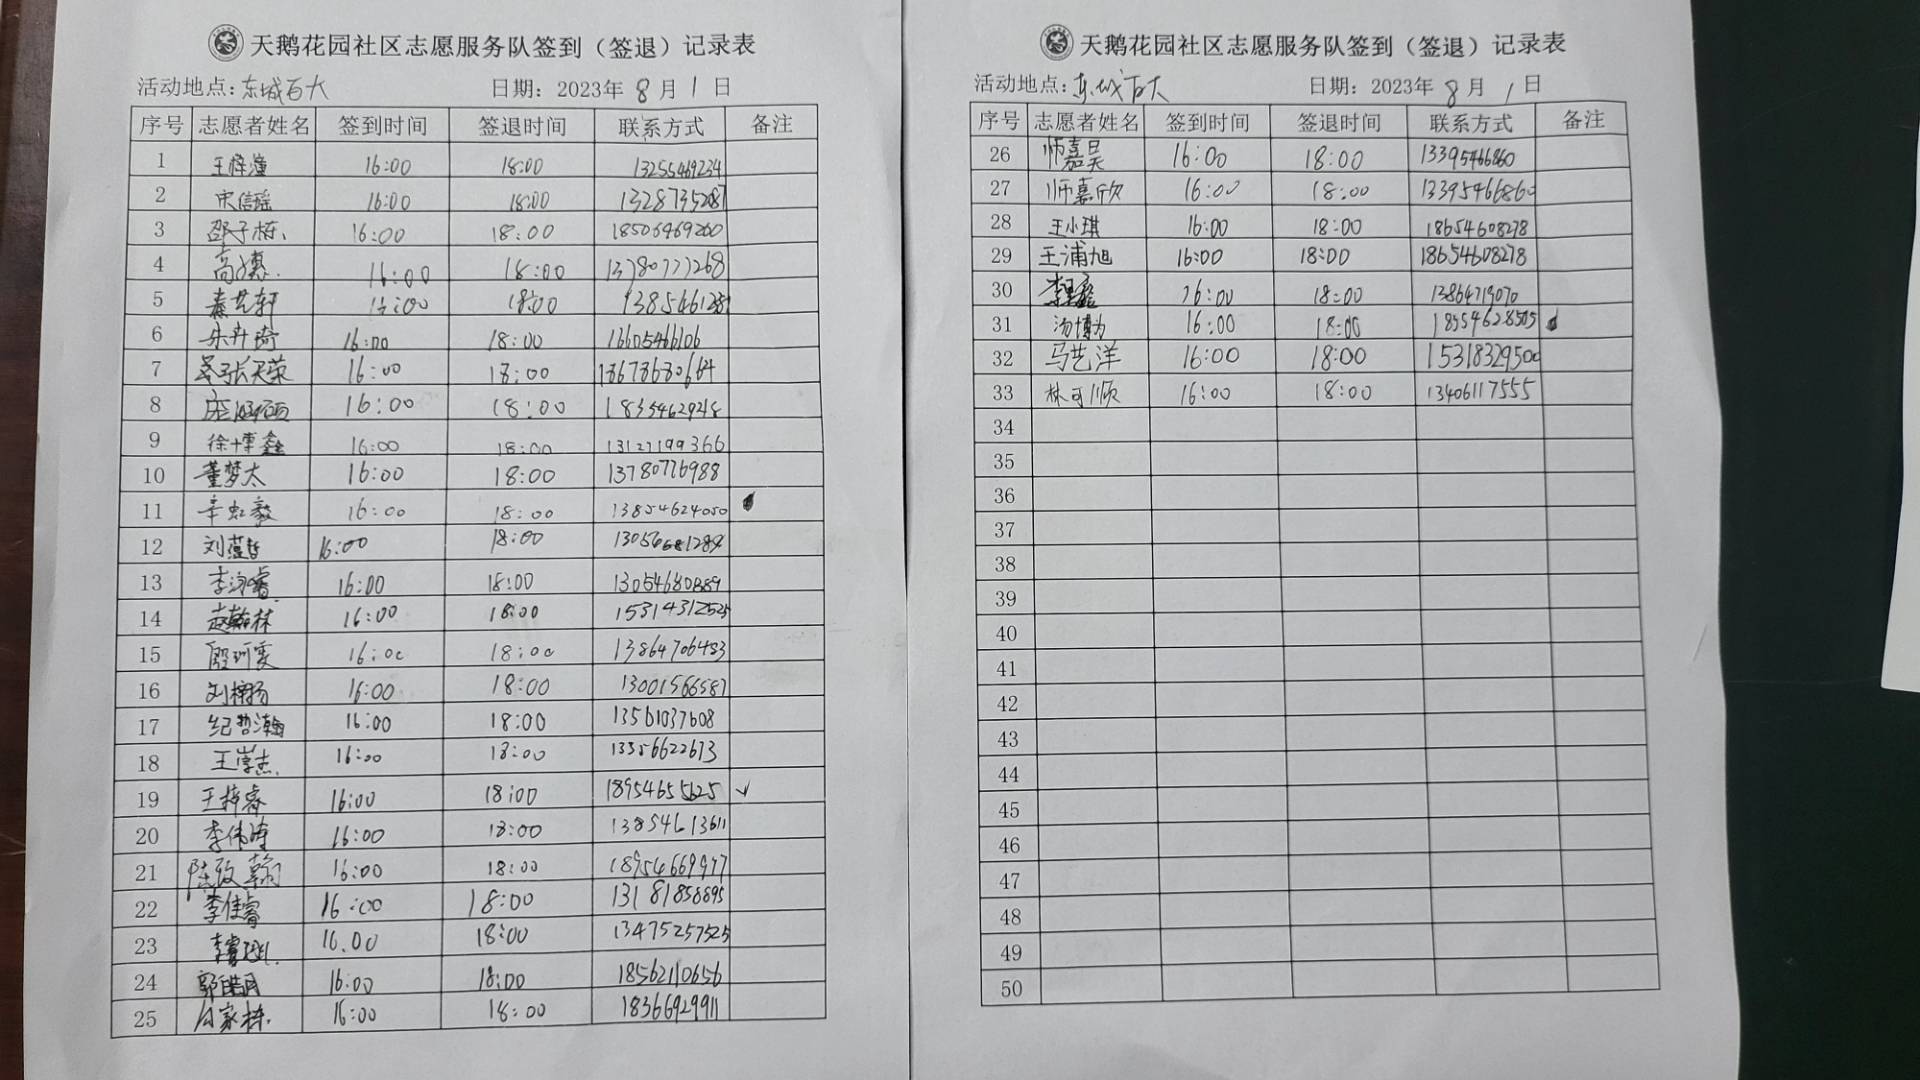 天鹅花园社区志愿服务队签到（签退）记录表
活动地点：东城百大 日期：2023年 8 月 1 日
序号 志愿者姓名 签到时间 签退时间 联系方式 备注
1 16:00 18:00 13255469234
2 宋信瑶 16:00 18:00 13287352087
3 邵子栋 16:00 18:00 18506469260
4 16:00 18:00 13780777268
5 秦艺轩 16:00 18:00
6 16:00 18:00 16605466106
7 16:00 18:00 18678680664
8 16:00 18:00 18354629218
9 徐博鑫 16:00 18:00 13127199366
10 董梦太 16:00 18:00 13780776988
11 辛虹毅 16:00 18:00 13854624050
12 16:00 18:00
13 16:00 18:00
14 赵翰林 16:00 18:00 15314312525
15 16:00 18:00 13864706483
16 16:00 18:00 13001566587
17 纪哲瀚 16:00 18:00 13561037608
18 王崇杰 16:00 18:00 13356622673
19 王梓睿 16:00 18:00 18954655625 ✓
20 李伟涛 16:00 18:00 13854613611
21 16:00 18:00 18954669977
22 李佳睿 16:00 18:00 13181858695
23 16.00 18:00 13475257525
24 郭皓月 16:00 18:00 18562110656
25 16:00 18:00 18366929911
天鹅花园社区志愿服务队签到（签退）记录表
活动地点：东城百大 日期：2023年 8 月 1 日
序号 志愿者姓名 签到时间 签退时间 联系方式 备注
26 师嘉昊 16:00 18:00 13395466860
27 师嘉欣 16:00 18:00 13395466860
28 王小琪 16:00 18:00 18654608278
29 王浦旭 16:00 18:00 18654608278
30 16:00 18:00 13864719070
31 汤博为 16:00 18:00 18554628505
32 马艺洋 16:00 18:00 15318329500
33 林可顺 16:00 18:00 13406117555
34
35
36
37
38
39
40
41
42
43
44
45
46
47
48
49
50